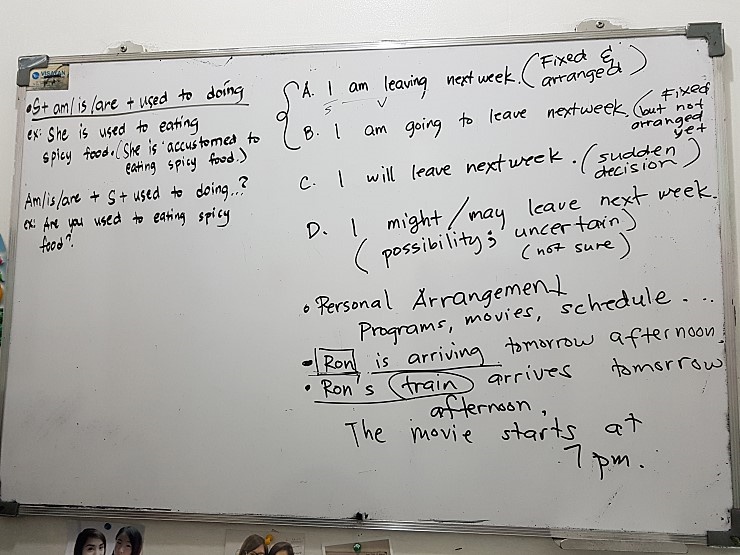 VISAYAN
• S + am/is/are + used to doing
ex: She is used to eating
spicy food. (She is accustomed to
eating spicy food.)
Am/is/are + S + used to doing...?
ex: Are you used to eating spicy
food?
A. I am leaving next week. (Fixed &
arranged)
S V
B. I am going to leave next week. (Fixed
but not
arranged
yet
C. I will leave next week. (sudden
decision)
D. I might/may leave next week.
(possibility; uncertain)
(not sure)
• Personal Arrangement
Programs, movies, schedule...
- Ron is arriving tomorrow afternoon.
• Ron's train arrives tomorrow
afternoon.
The movie starts at
7 pm.